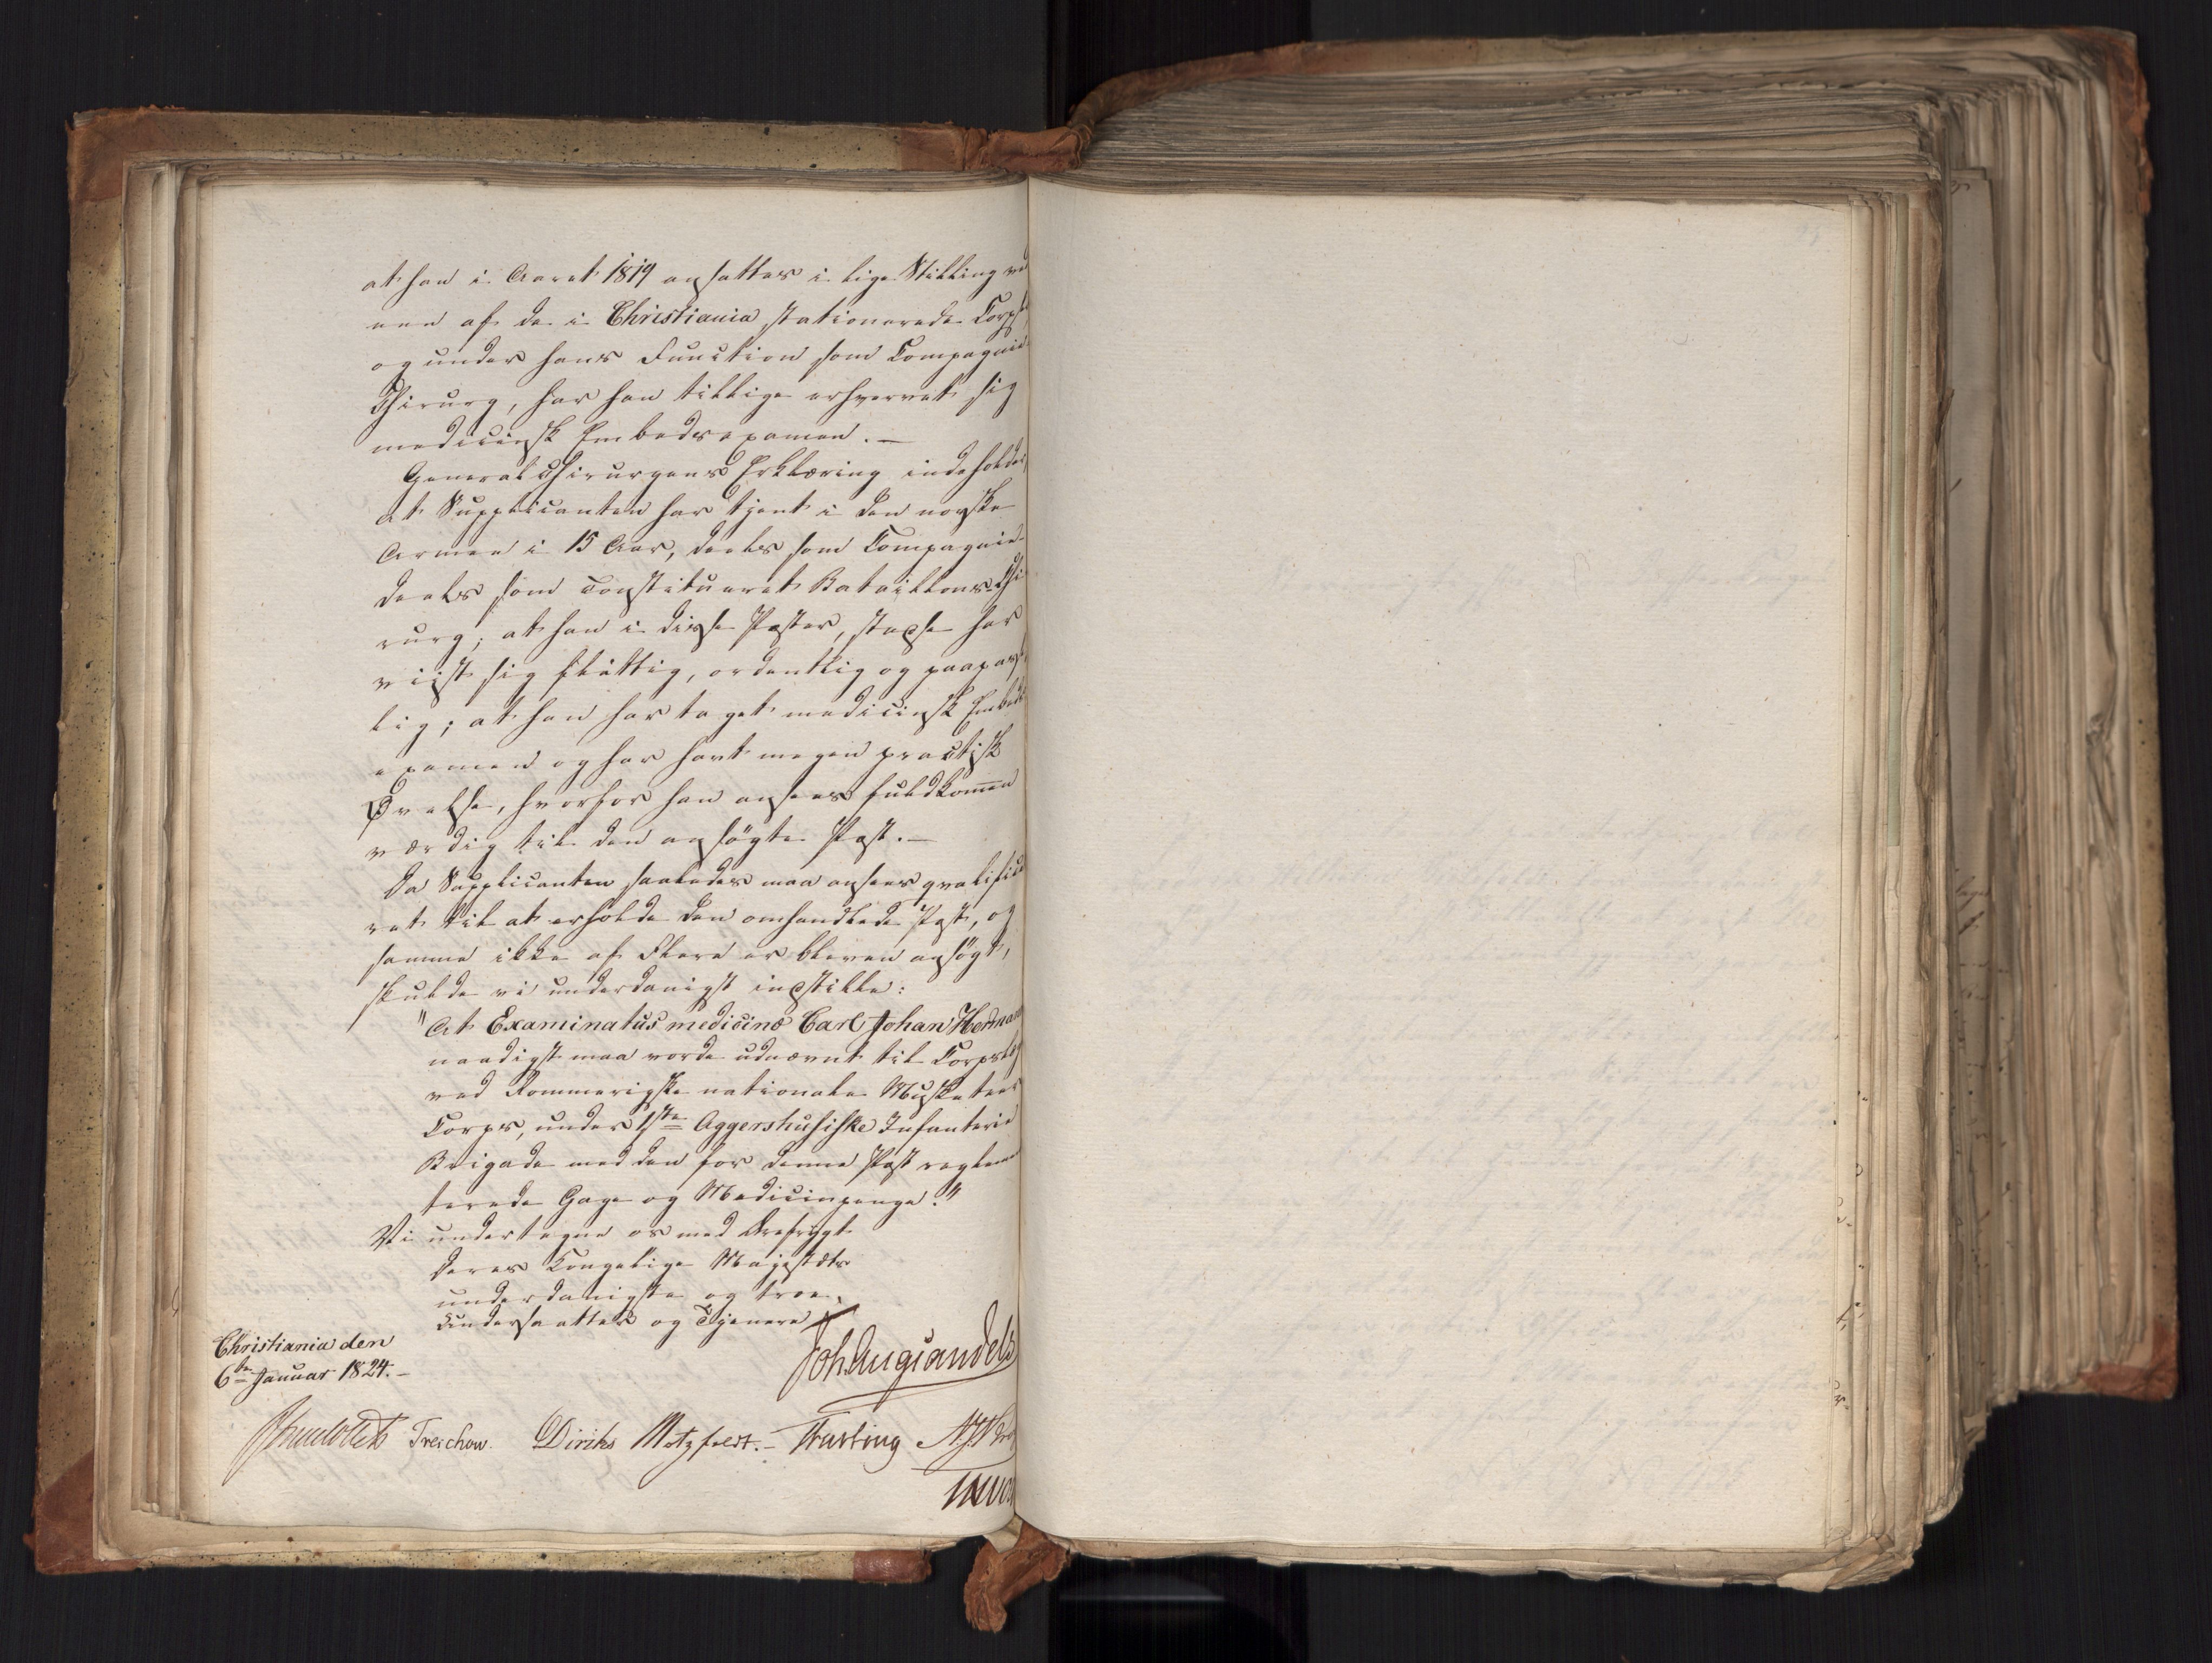 at han i Aaret 1819 ansattes i lige Stilling ved
een af de i Christiania stationerede Corpser,
og under hans Function som Compagnie-
Chirurg, har han tillige erhvervet sig
medicinsk Embedsexamen. —
General Chirurgens Erklæring indeholder,
at Supplicanten har tjent i den norske
Armee i 15 Aar, deels som Compagnie-
deels som constitueret Bataillons-Chi-
rurg; at han i disse Poster, stedse har
viist sig flittig, ordentlig og paapas-
lig; at han har taget medicinsk Embeds-
examen og har havt megen practisk
Øvelse, hvorfor han ansees fuldkommen
værdig til den ansøgte Post. —
Da Supplicanten saaledes maa ansees qvalifice-
ret til at erholde den omhandlede Post, og
samme ikke af Flere er bleven ansøgt,
skulde vi underdanigst indstille:
"At Examinatus medicinæ Carl Johan Herman
naadigst maa vorde udnævnt til Corpslæge
ved Rommerigske nationale Musketeer
Corps, under 1ste Aggershusiske Infanterie
Brigade med den for denne Post reglemen-
terede Gage og Medicinpenge."
Vi undertegne os med Ærefrygt
Deres Kongelige Majestæts
underdanigste og troe-
Undersaatter og Tjenere
Joh. Aug. Sandels
Christiania den
6te Januar 1824. —
Treschow. Diriks Motzfeldt. —